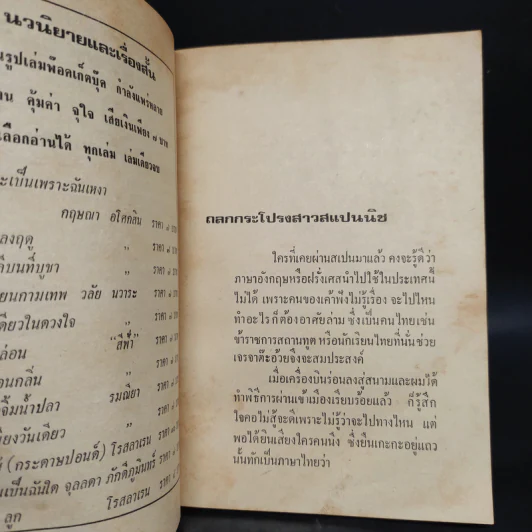 นวนิยายและเรื่องสั้น
นรูปเล่มพ๊อคเก็ตบุ๊ค กำลังแพร่หลาย
คุ้มค่า จุใจ เสียเงินเพียง ๗ บาท
เลือกอ่านได้ ทุกเล่ม เล่มเดียวจบ
ะเป็นเพราะฉันเหงา
กฤษณา อโศกสิน ราคา
ลงฤดู "
ลีบนที่บูชา "
ยนกามเทพ วลัย นวาระ ราคา
เดียวในดวงใจ "
ล่อน "สีฟ้า" ราคา
อนกลิ่น "
จิ้มน้ำปลา รมณียา ราคา
ียงวันเดียว "
(กระดาษปอนด์) โรสลาเรน ราคา
นเป็นฉันใด จุลลดา ภักดีภูมินทร์ ราคา
ลูก โรสลาเรน
ถลกกระโปรงสาวสแปนนิช
ใครที่เคยผ่านสเปนมาแล้ว คงจะรู้ดีว่า
ภาษาอังกฤษหรือฝรั่งเศสนำไปใช้ในประเทศนี้
ไม่ได้ เพราะคนของเค้าฟังไม่รู้เรื่อง จะไปไหน
ทำอะไร ก็ต้องอาศัยล่าม ซึ่งเป็นคนไทยเช่น
ข้าราชการสถานทูต หรือนักเรียนไทยที่นั่นช่วย
เจรจาต๊ะอ้วยจึงจะสมประสงค์
เมื่อเครื่องบินร่อนลงสู่สนามและผมได้
ทำพิธีการผ่านเข้าเมืองเรียบร้อยแล้ว ก็รู้สึก
ใจคอไม่สู้จะดีเพราะไม่รู้ว่าจะไปทางไหน แต่
พอได้ยินเสียงใครคนนึ่ง ซึ่งยืนเกะกะอยู่แถว
นั้นทักเป็นภาษาไทยว่า